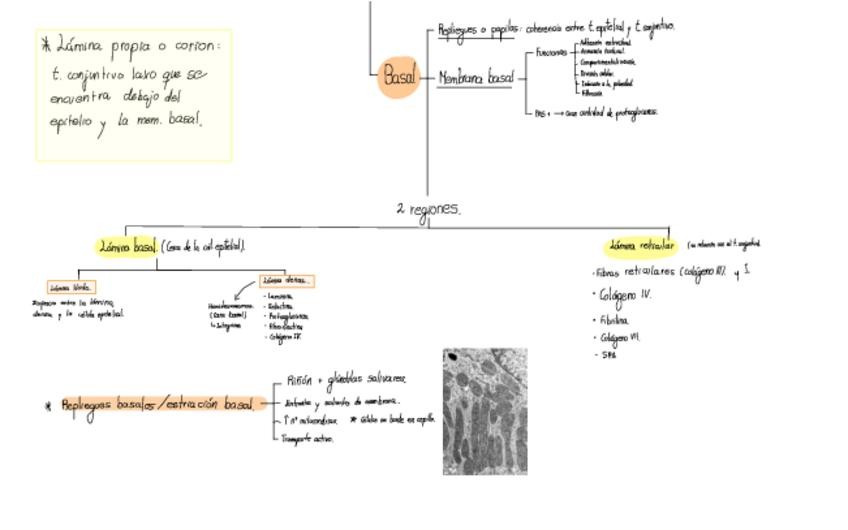 * Lámina propia o corion:
t. conjuntivo laxo que se
encuentra debajo del
epitelio y la mem. basal.
Basal
Repliegues o papilas: coherencia entre t. epitelial y t. conjuntivo.
Membrana basal
Funciones
Adhesión estructural.
Compartimentalización.
División celular.
Inducción a la polaridad
Filtración
PAS + → Gran cantidad de proteoglicanos.
2 regiones.
Lámina basal. (Cara de la cél epitelial).
Lámina lúcida.
Espacio entre la lámina
densa y la célula epitelial.
Lámina densa.
Hemidesmosomas.
(Cara basal)
↳ Integrina
- Laminina
- Entactina
- Proteoglicanos
- Fibronectina
- Colágeno IV.
Lámina reticular
· Fibras reticulares (colágeno III) y I
· Colágeno IV.
· Fibrilina
· Colágeno VII.
* Repliegues basales/estriación basal.
Riñón + glándulas salivares.
Entrantes y salientes de membrana.
↑ nº mitocondrias
* Células en borde en cepillo.
Transporte activo.